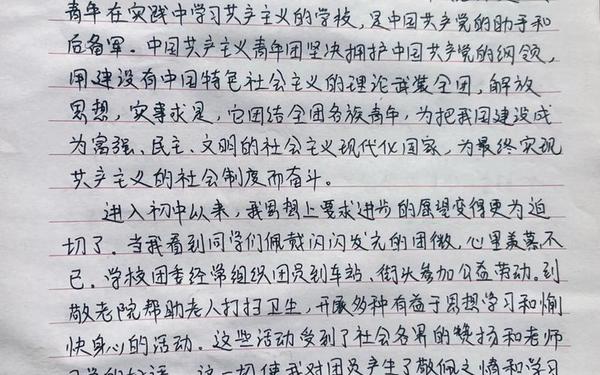 青年在实践中学习共产主义的学校，是中国共产党的助手和
后备军。中国共产主义青年团坚决拥护中国共产党的纲领，
用建设有中国特色社会主义的理论武装全团，解放
思想，实事求是，它团结全国各族青年，为把我国建设成
为富强、民主、文明的社会主义现代化国家，为最终实现
共产主义的社会制度而奋斗。
进入初中以来，我思想上要求进步的愿望变得更为迫
切了。当我看到同学们佩戴闪闪发光的团徽，心里羡慕不
已。学校团委经常组织团员到车站、街头参加公益劳动。到
敬老院帮助老人打扫卫生，开展多种有益于思想学习和愉
快身心的活动。这些活动受到了社会各界的赞扬和老师
这一切使我对团员产生了敬佩之情和学习